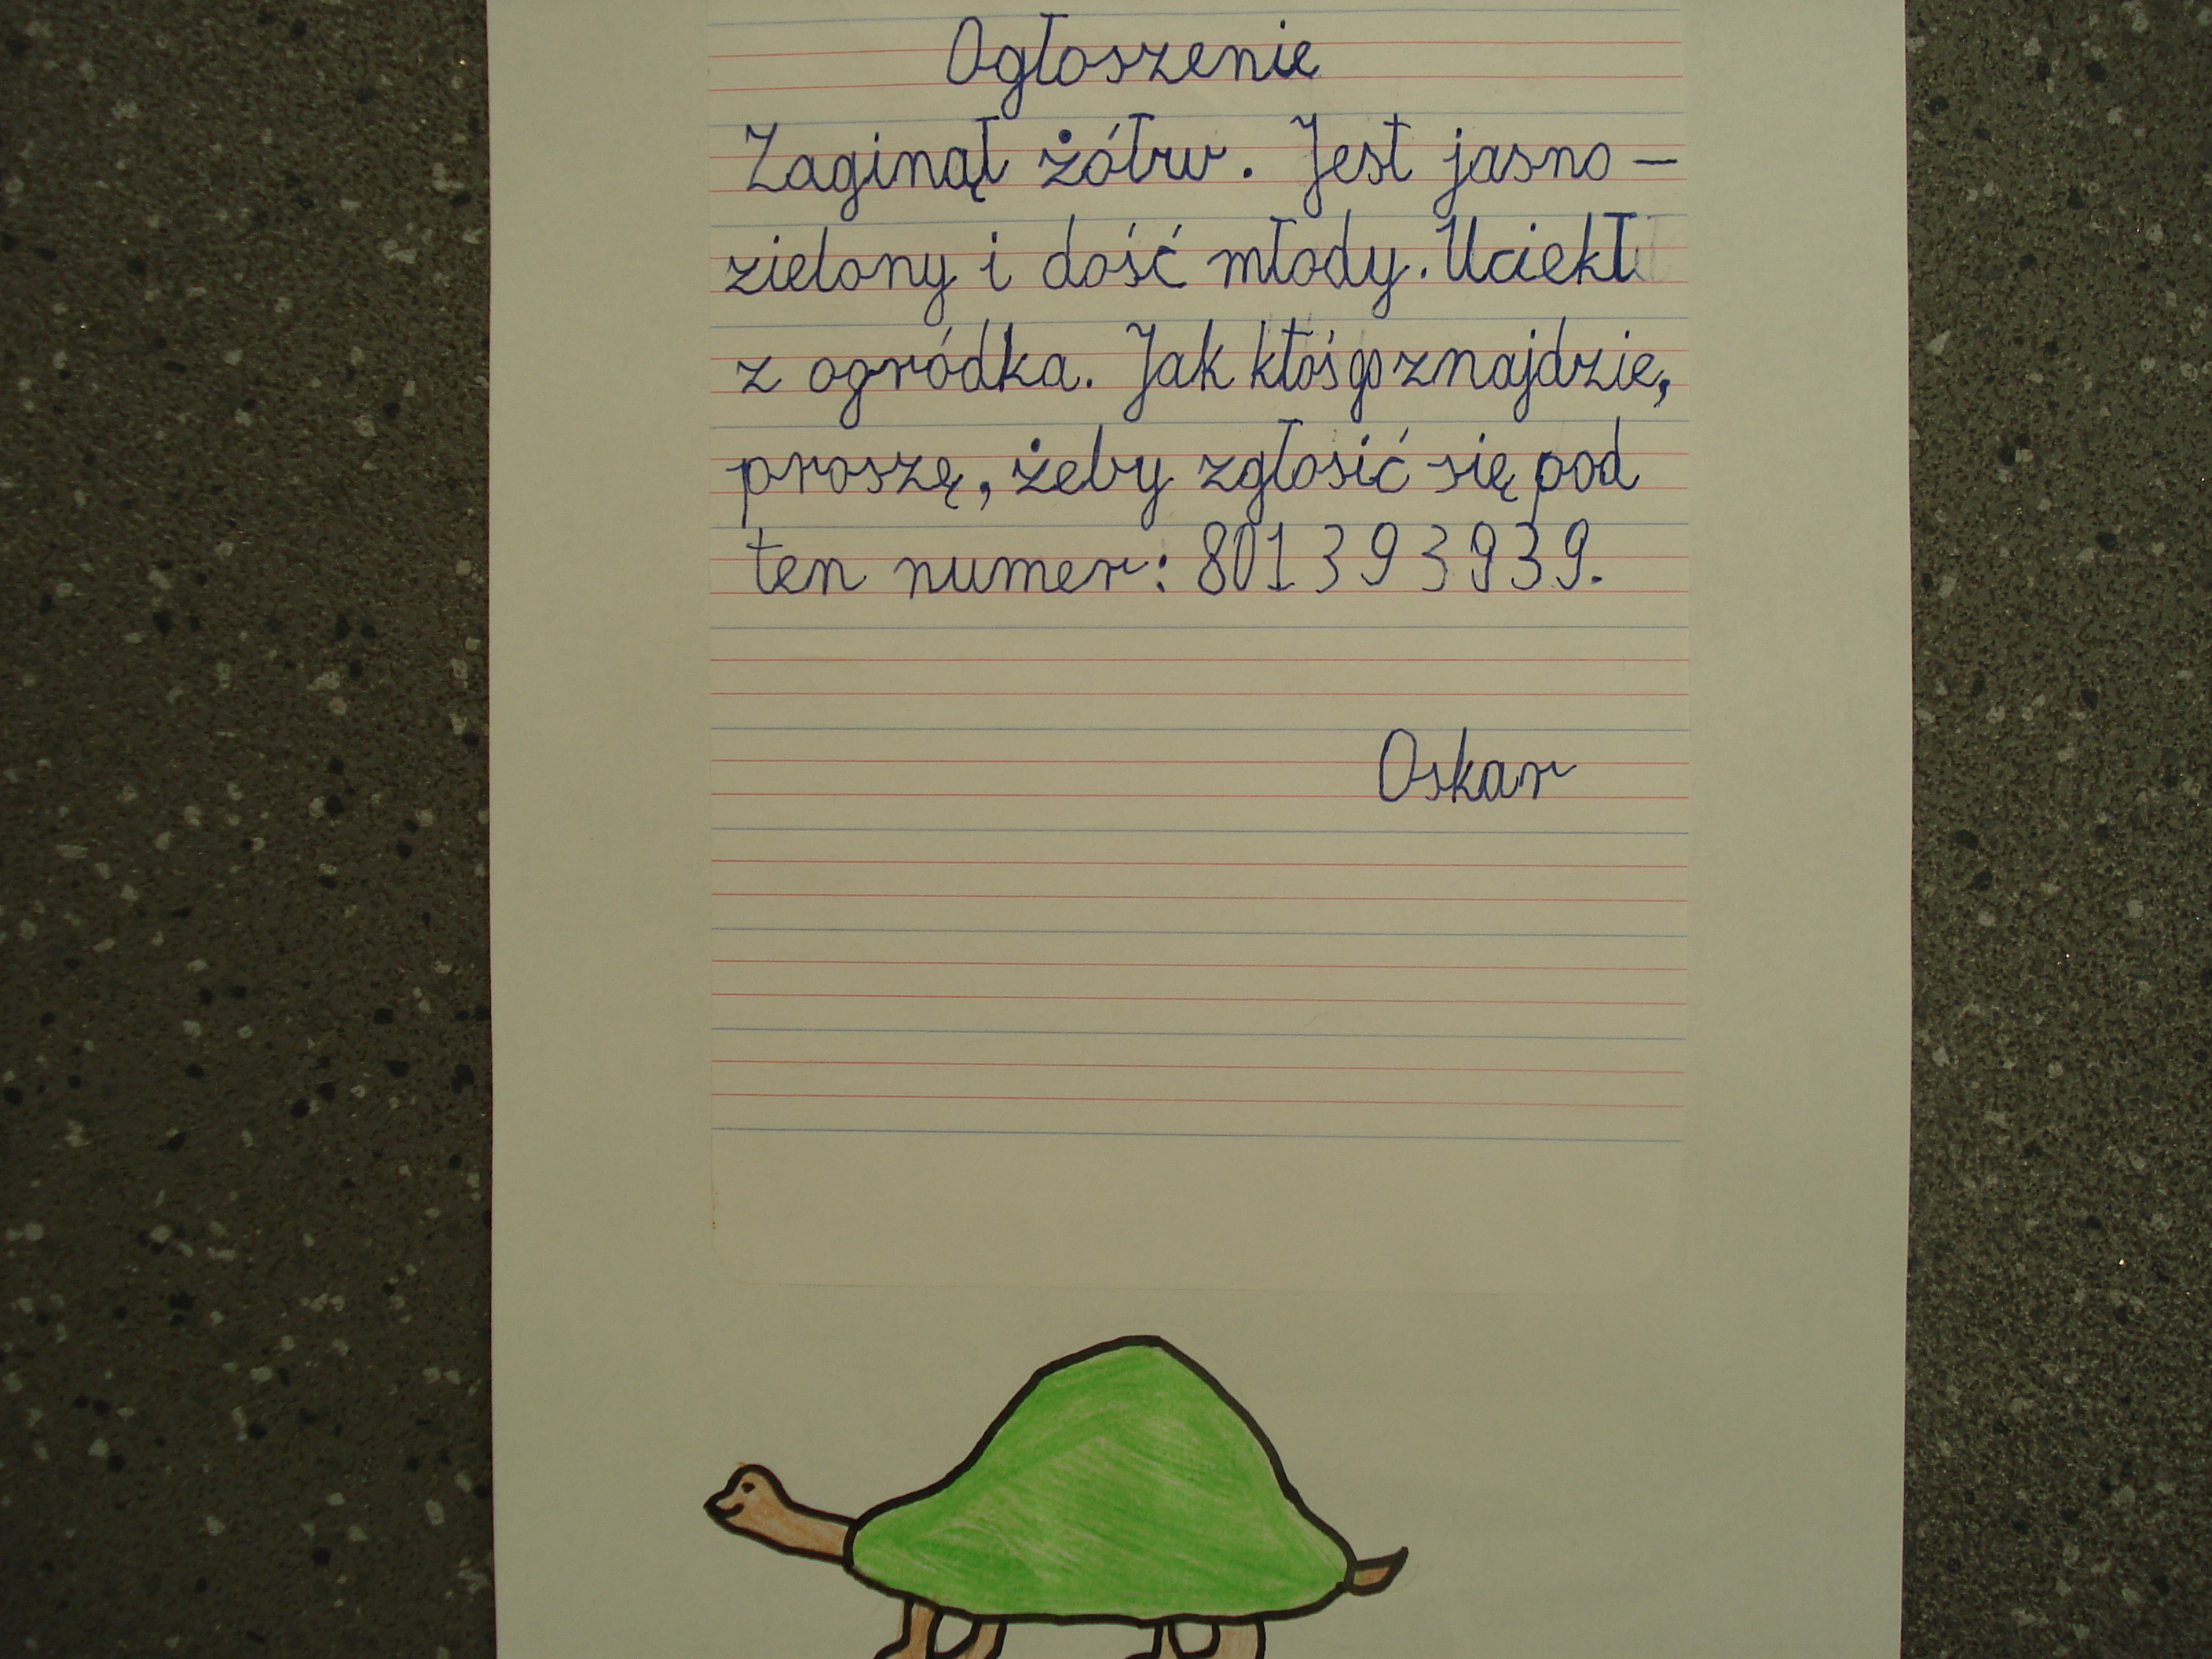 Ogłoszenie
Zaginął żółw. Jest jasno-
zielony i dość młody. Uciekł
z ogródka. Jak ktoś go znajdzie,
proszę, żeby zgłosić się pod
ten numer: 801 3 9 3 9 3 9.
Oskar